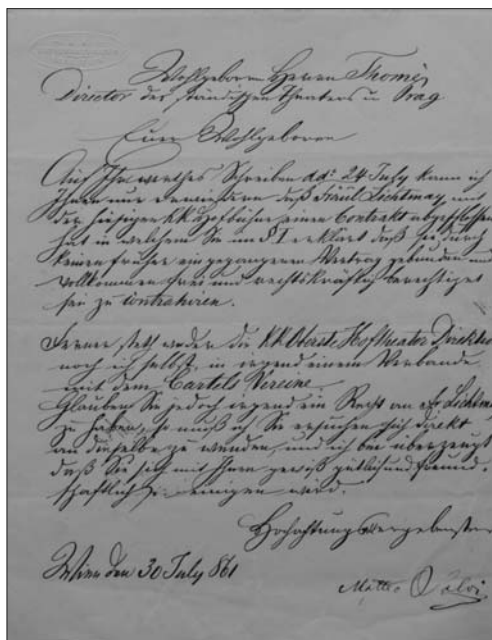 Wohlgeboren Herren Thomé,
Director des ständischen Theaters in Prag
Euer Wohlgeboren
Auf Ihr werthes Schreiben dd: 24 July kann ich
Ihnen nur erwiedern daß Fräul Lichtmay, mit
der hiesigen KK Hofbühne einen Contrakt abgeschlossen
hat in welchem Sie im § I erklärt daß sie durch
keinen früher eingegangenen Vertrag gebunden und
vollkommen frei und rechtskräftig berechtiget
sei zu contrahiren.
Ferner steht weder die KK Oberste Hoftheater Direktion
noch ich selbst, in irgend einem Verbande
mit dem Cartels Vereine.
Glauben Sie jedoch irgend ein Recht an Lichtmay
zu haben, so muß ich Sie ersuchen sich direkt
an dieselbe zu wenden, und ich bin überzeugt
daß Sie sich mit Ihnen gewiß gütlich und freund-
schaftlich einigen wird.
Hochachtungsvoll ergebenster
Wien den 30 July 861
Matteo Salvi